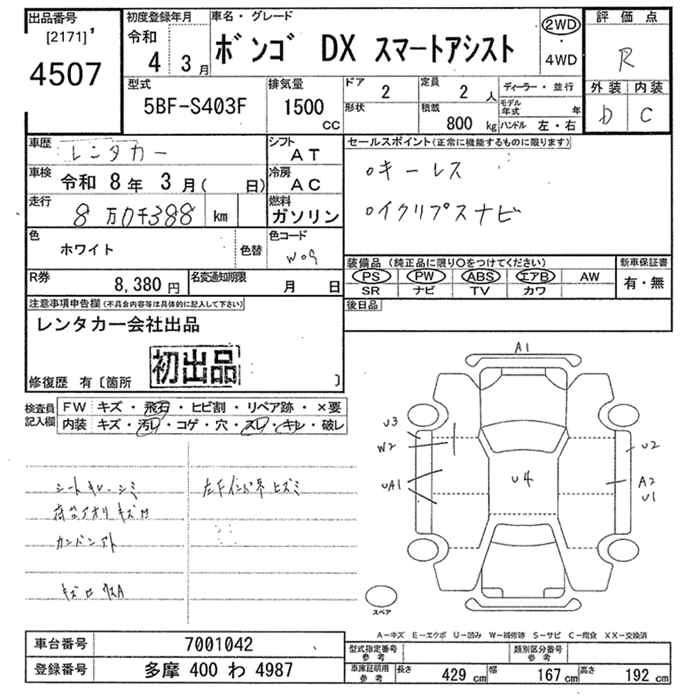 出品番号
[2171]
4507
初度登録年月
令和
4 3月
車名・グレード
ボンゴ DX スマートアシスト
2WD
・
4WD
評価点
R
外装 内装
D C
型式
5BF-S403F
排気量
1500
CC
ドア
2
定員
2 人
形状
積載
800 kg
ディーラー・並行
モデル年式 年
ハンドル 左・右
車歴
レンタカー
シフト
AT
車検
令和 8年 3月( 日)
冷房
AC
走行
8万0千388 km
燃料
ガソリン
色
ホワイト
色替
色コード
W09
R券
8,380円
名変通知期限
月 日
セールスポイント(正常に機能するものに限ります)
○キーレス
○イクリプスナビ
装備品(純正品に限り○をつけてください)
新車保証書
PS PW ABS エアB AW
SR ナビ TV カワ
有・無
後日品
注意事項申告欄(不具合内容等は具体的に記入して下さい)
レンタカー会社出品
初出品
修復歴 有〔箇所 〕
検査員記入欄
FW キズ・飛石・ヒビ割・リペア跡・×要
内装 キズ・汚レ・コゲ・穴・スレ・キレ・破レ
シートキレ・シミ
キズ
A1
U3
W2
UA1
U4
U2
A2
U1
スペア
A-キズ E-エクボ U-凹み W-補修跡 S-サビ C-腐食 XX-交換済
車台番号
7001042
登録番号
多摩 400 わ 4987
型式指定番号
参考
類別区分番号
参考
車庫証明用
参考
長さ 429 cm
幅 167 cm
高さ 192 cm